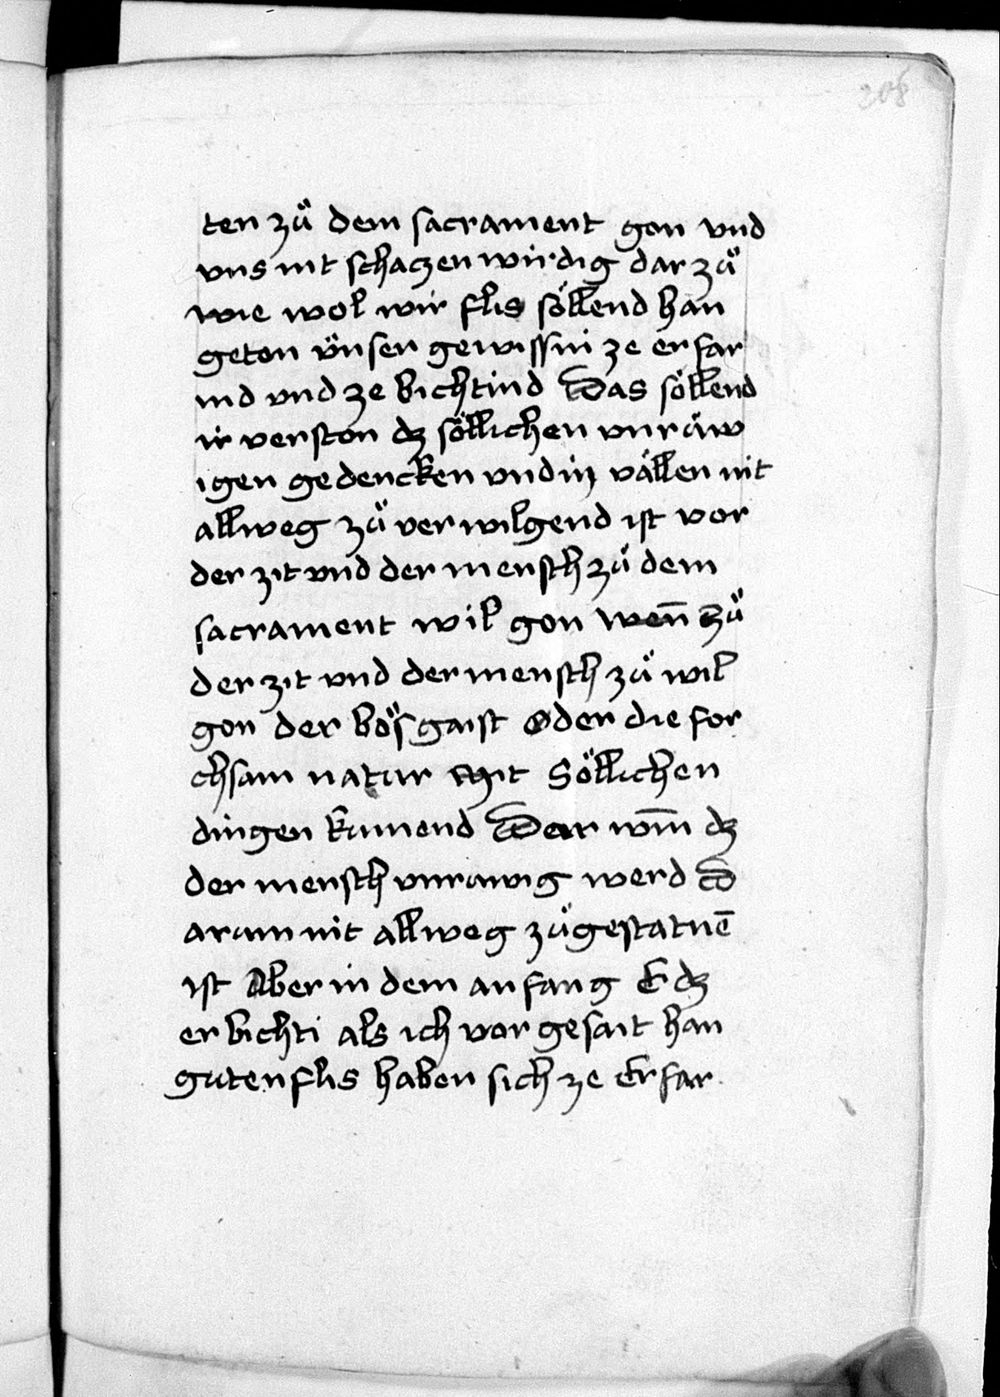 208
ten zů dem sacrament gon vnd
vns nit schaczen wirdig dar zů
wie wol wir flis söllend han
geton v̈nser gewissni ze erfar
ind vnd ze bichtind Das söllend
ir verston dz söllichen vnrüw
igen gedencken vnd in vällen nit
allweg zů verwilgend ist vor
der zit vnd der mensch zů dem
sacrament wil gon wen̄ zů
der zit vnd der mensch zů wil
gon der bös gaist oder die for
chsam natur mit Söllichen
dingen kumend Dar vm̄ dz
der mensch vnruwig werd D
arum nit allweg zů gestatnē
ist Aber in dem anfang E dz
er bichti als ich vor gesait han
guten flis haben sich ze erfar